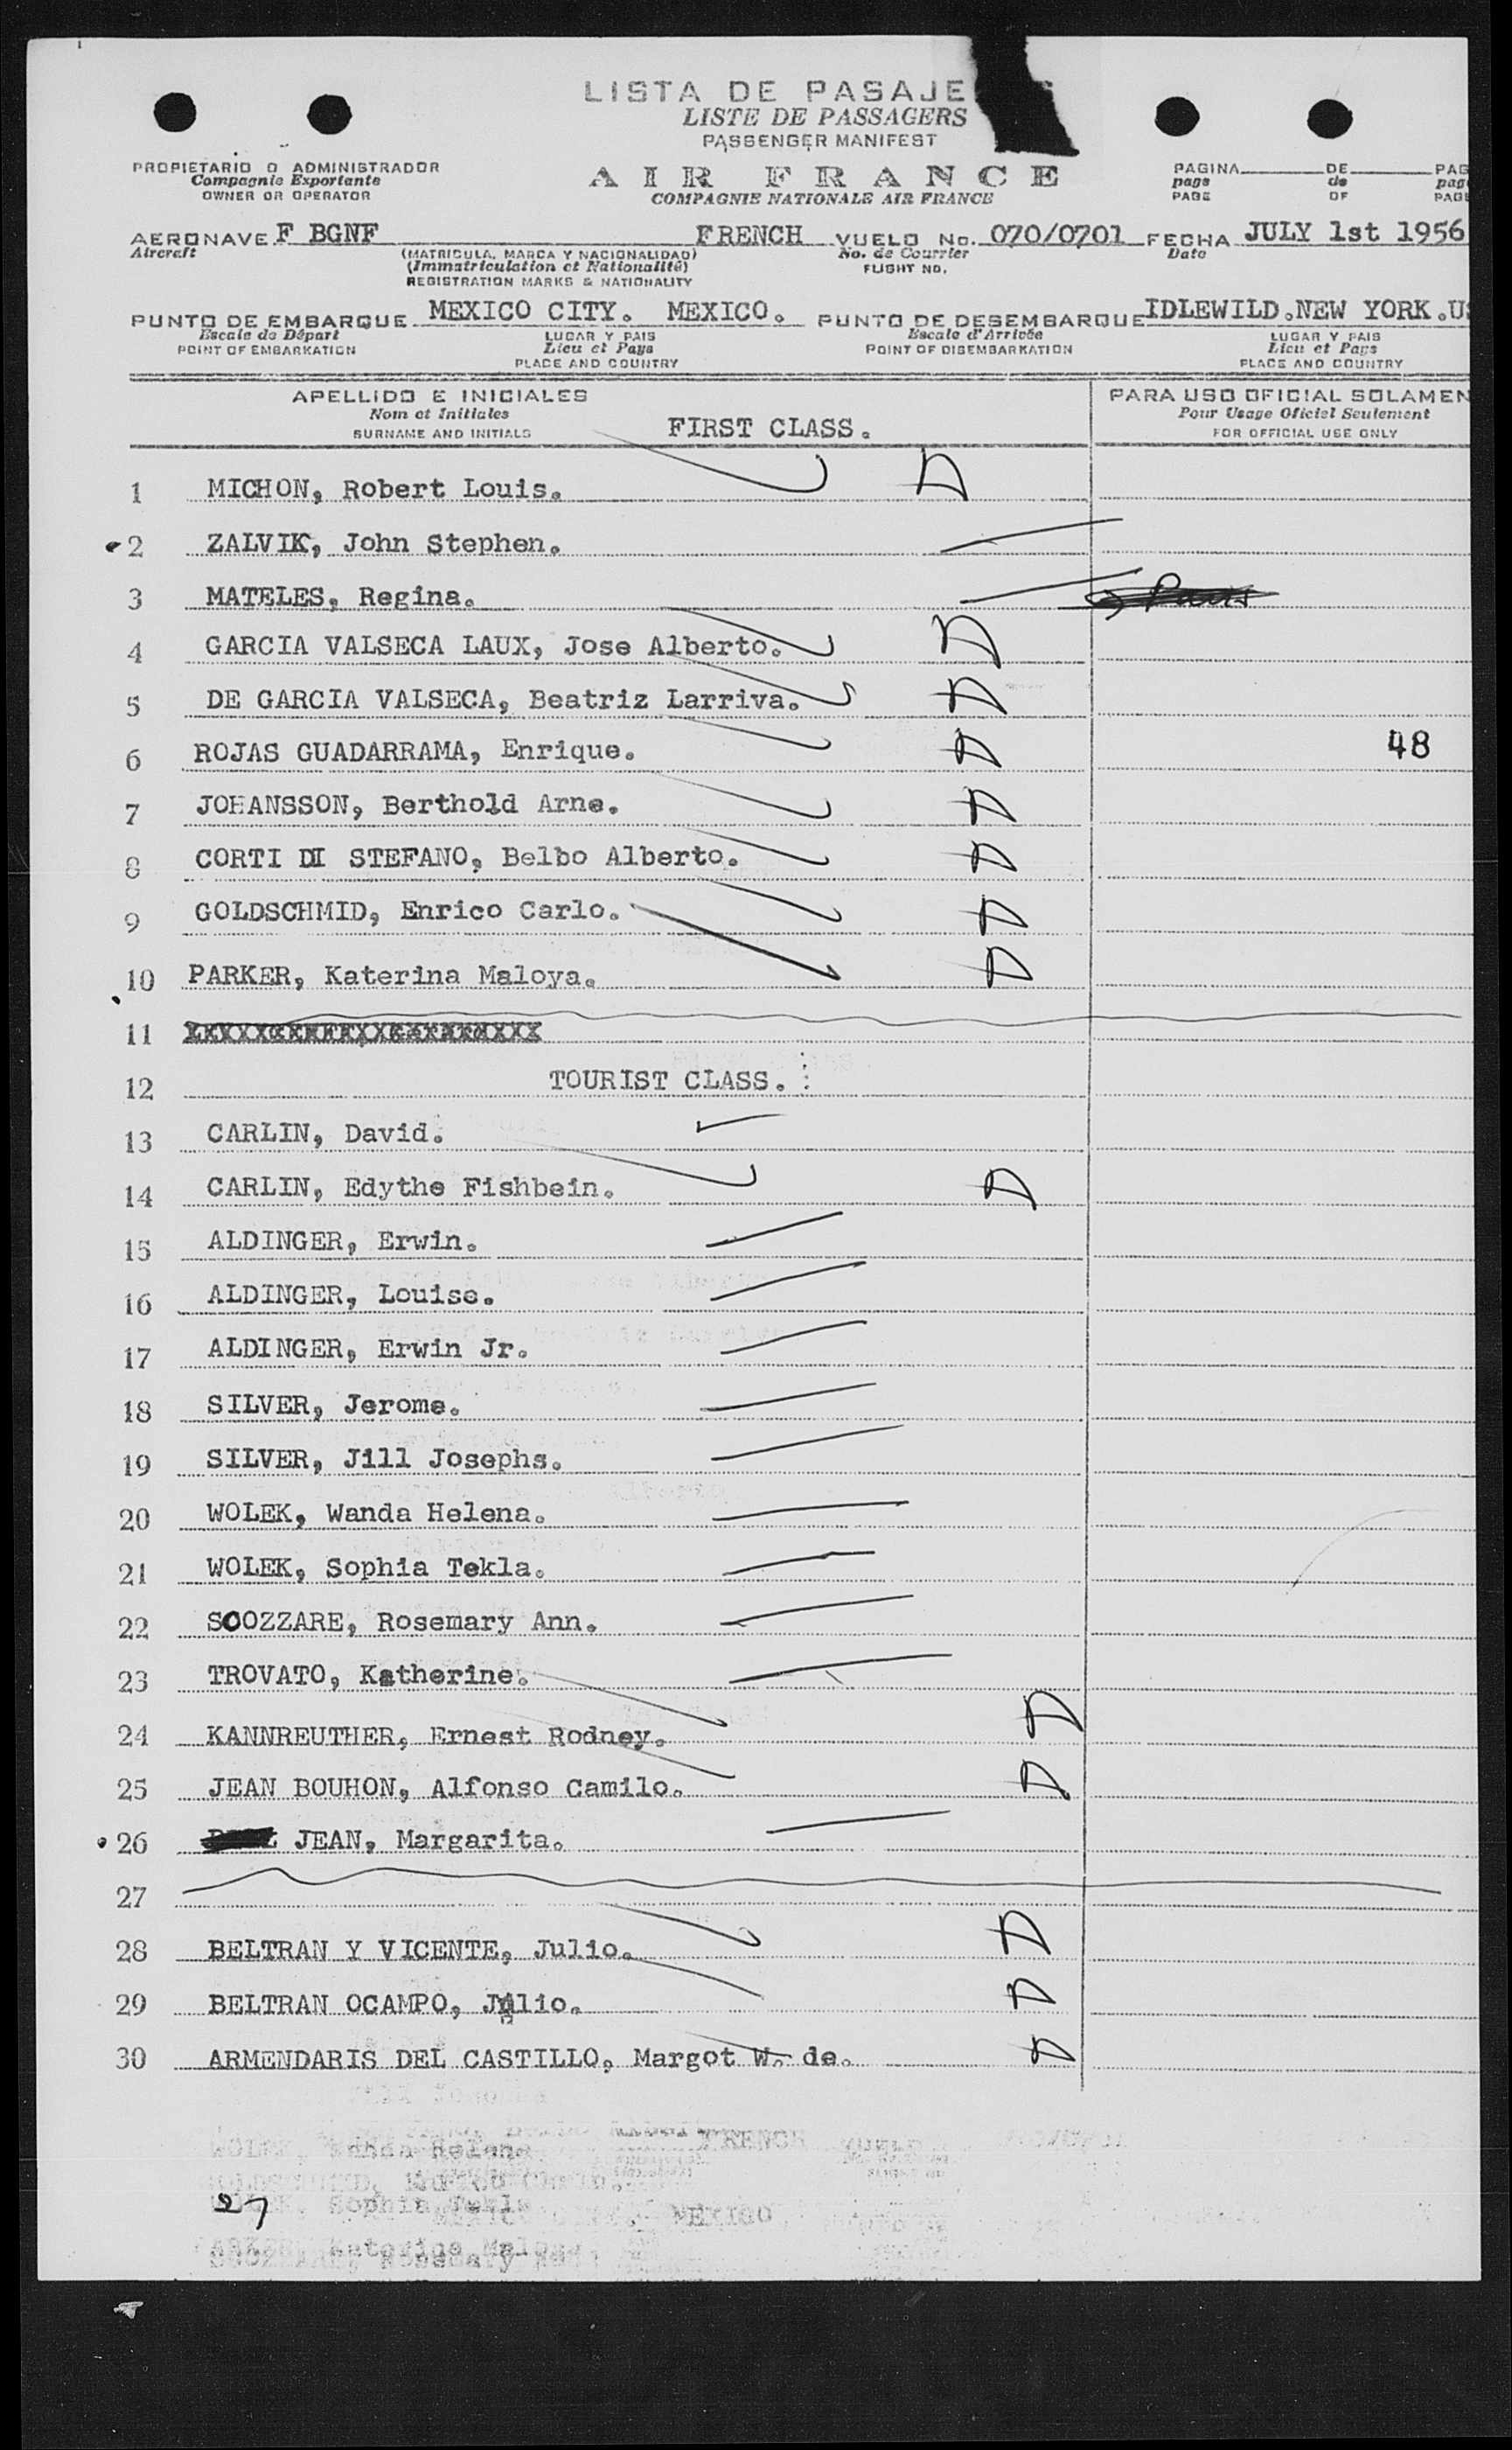 LISTA DE PASAJE
LISTE DE PASSAGERS
PASSENGER MANIFEST
PROPIETARIO O ADMINISTRADOR
Compagnie Exportante
OWNER OR OPERATOR
AIR FRANCE
COMPAGNIE NATIONALE AIR FRANCE
PAGINA DE PAG
page de pag
PAGE OF PAG
AERONAVE F BGNF FRENCH VUELO No. 070/0701 FECHA JULY 1st 1956
Aircraft (MATRICULA, MARCA Y NACIONALIDAD) No. de Courrier Date
(Immatriculation et Nationalité) FLIGHT NO.
REGISTRATION MARKS & NATIONALITY
PUNTO DE EMBARQUE MEXICO CITY. MEXICO. PUNTO DE DESEMBARQUE IDLEWILD.NEW YORK.U
Escale de Départ LUGAR Y PAIS Escale d'Arrivée LUGAR Y PAIS
POINT OF EMBARKATION Lieu et Pays POINT OF DISEMBARKATION Lieu et Pays
PLACE AND COUNTRY PLACE AND COUNTRY
APELLIDO E INICIALES PARA USO OFICIAL SOLAMEN
Nom et Initiales Pour Usage Oficiel Seulement
SURNAME AND INITIALS FIRST CLASS. FOR OFFICIAL USE ONLY
1 MICHON, Robert Louis. D
2 ZALVIK, John Stephen.
3 MATELES, Regina.
4 GARCIA VALSECA LAUX, Jose Alberto. D
5 DE GARCIA VALSECA, Beatriz Larriva. D
6 ROJAS GUADARRAMA, Enrique. D 48
7 JOHANSSON, Berthold Arne. D
8 CORTI DI STEFANO, Belbo Alberto. D
9 GOLDSCHMID, Enrico Carlo. D
10 PARKER, Katerina Maloya. D
11
12 TOURIST CLASS.
13 CARLIN, David.
14 CARLIN, Edythe Fishbein. D
15 ALDINGER, Erwin.
16 ALDINGER, Louise.
17 ALDINGER, Erwin Jr.
18 SILVER, Jerome.
19 SILVER, Jill Josephs.
20 WOLEK, Wanda Helena.
21 WOLEK, Sophia Tekla.
22 SOOZZARE, Rosemary Ann.
23 TROVATO, Katherine.
24 KANNREUTHER, Ernest Rodney. D
25 JEAN BOUHON, Alfonso Camilo. D
26 JEAN, Margarita.
27
28 BELTRAN Y VICENTE, Julio. D
29 BELTRAN OCAMPO, Julio. D
30 ARMENDARIS DEL CASTILLO, Margot W. de. D
27